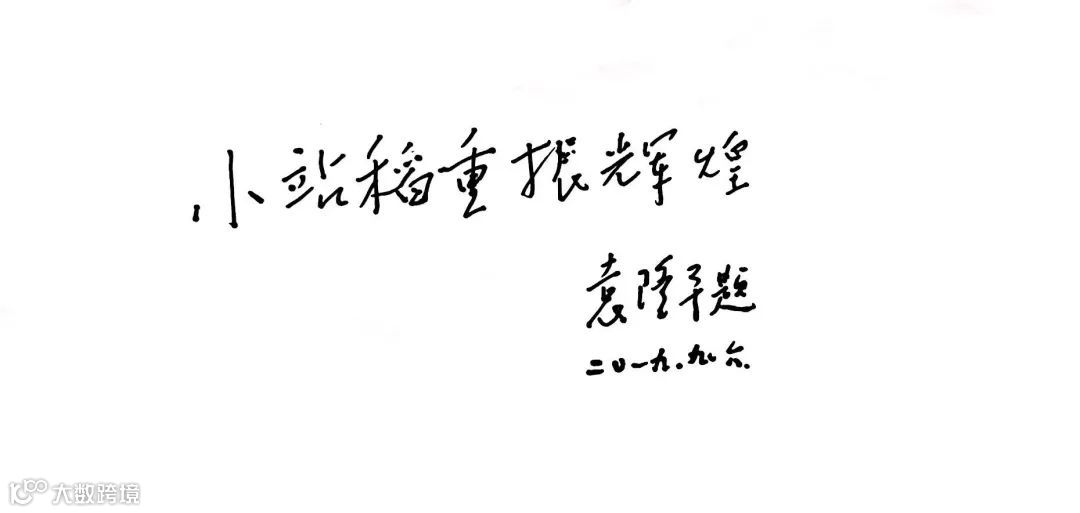 小站稻重振辉煌
袁隆平题
二〇一九.九.六.
大数跨境